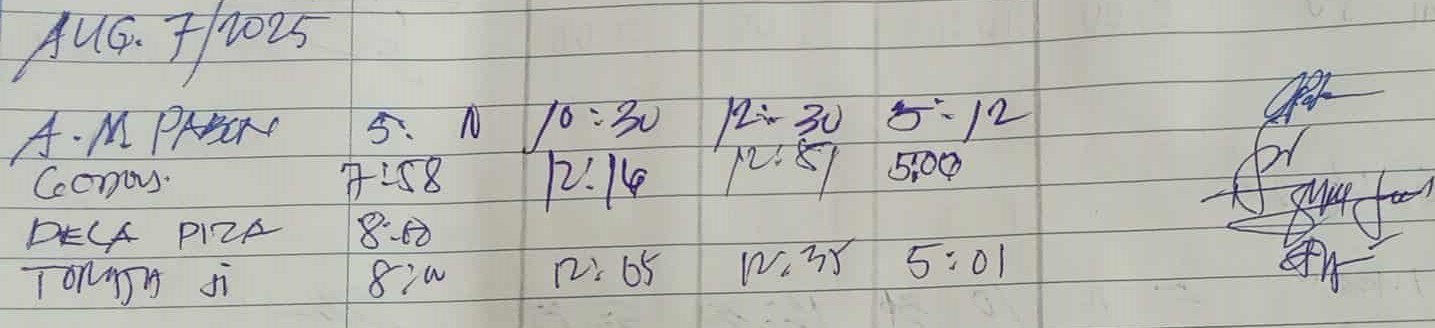 AUG. 7/2025
A.M PABON 5: N 10:30 12:30 5:12
7:58 12:16 12:51 5:00
DELA PIZA 8:00
8:00 12:05 12:35 5:01